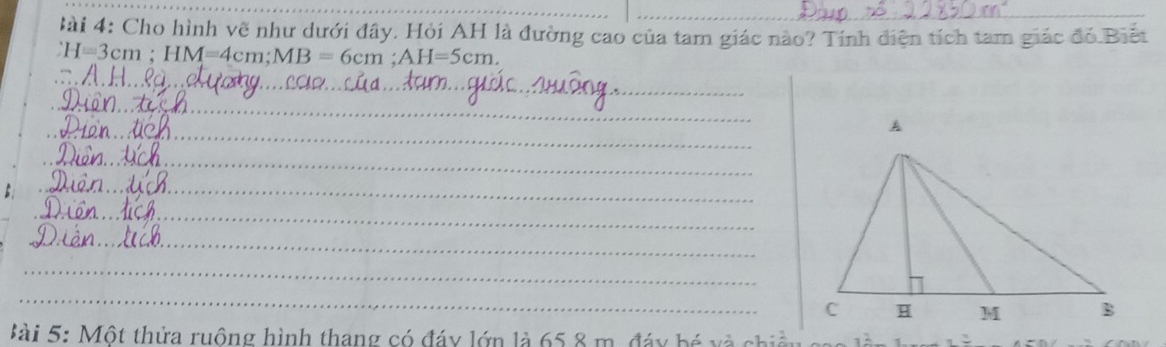 Đáp số 22850m²
Bài 4: Cho hình vẽ như dưới đây. Hỏi AH là đường cao của tam giác nào? Tính diện tích tam giác đó.Biết
CH=3cm ; HM=4cm;MB = 6cm ;AH=5cm.
A.H là đường cao của tam giác vuông.
Diện tích
Diện tích
Diện tích
Diện tích
Diện tích
Diện tích
A
C H M B
Bài 5: Một thửa ruộng hình thang có đáy lớn là 65,8 m, đáy bé và chiều cao lần lượt